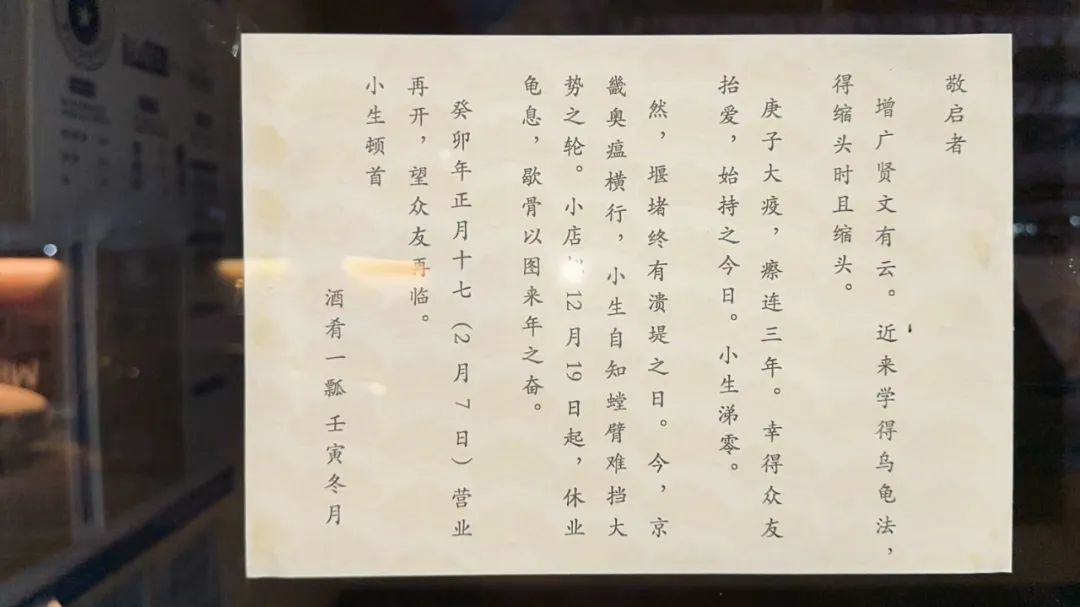 敬启者
增广贤文有云。近来学得乌龟法，
得缩头时且缩头。
庚子大疫，瘵连三年。幸得众友
抬爱，始持之今日。小生涕零。
然，堰堵终有溃堤之日。今，京
畿奥瘟横行，小生自知螳臂难挡大
势之轮。小店 12月19日起，休业
龟息，歇骨以图来年之奋。
癸卯年正月十七（2月7日）营业
再开，望众友再临。
小生顿首
酒肴一瓢 壬寅冬月